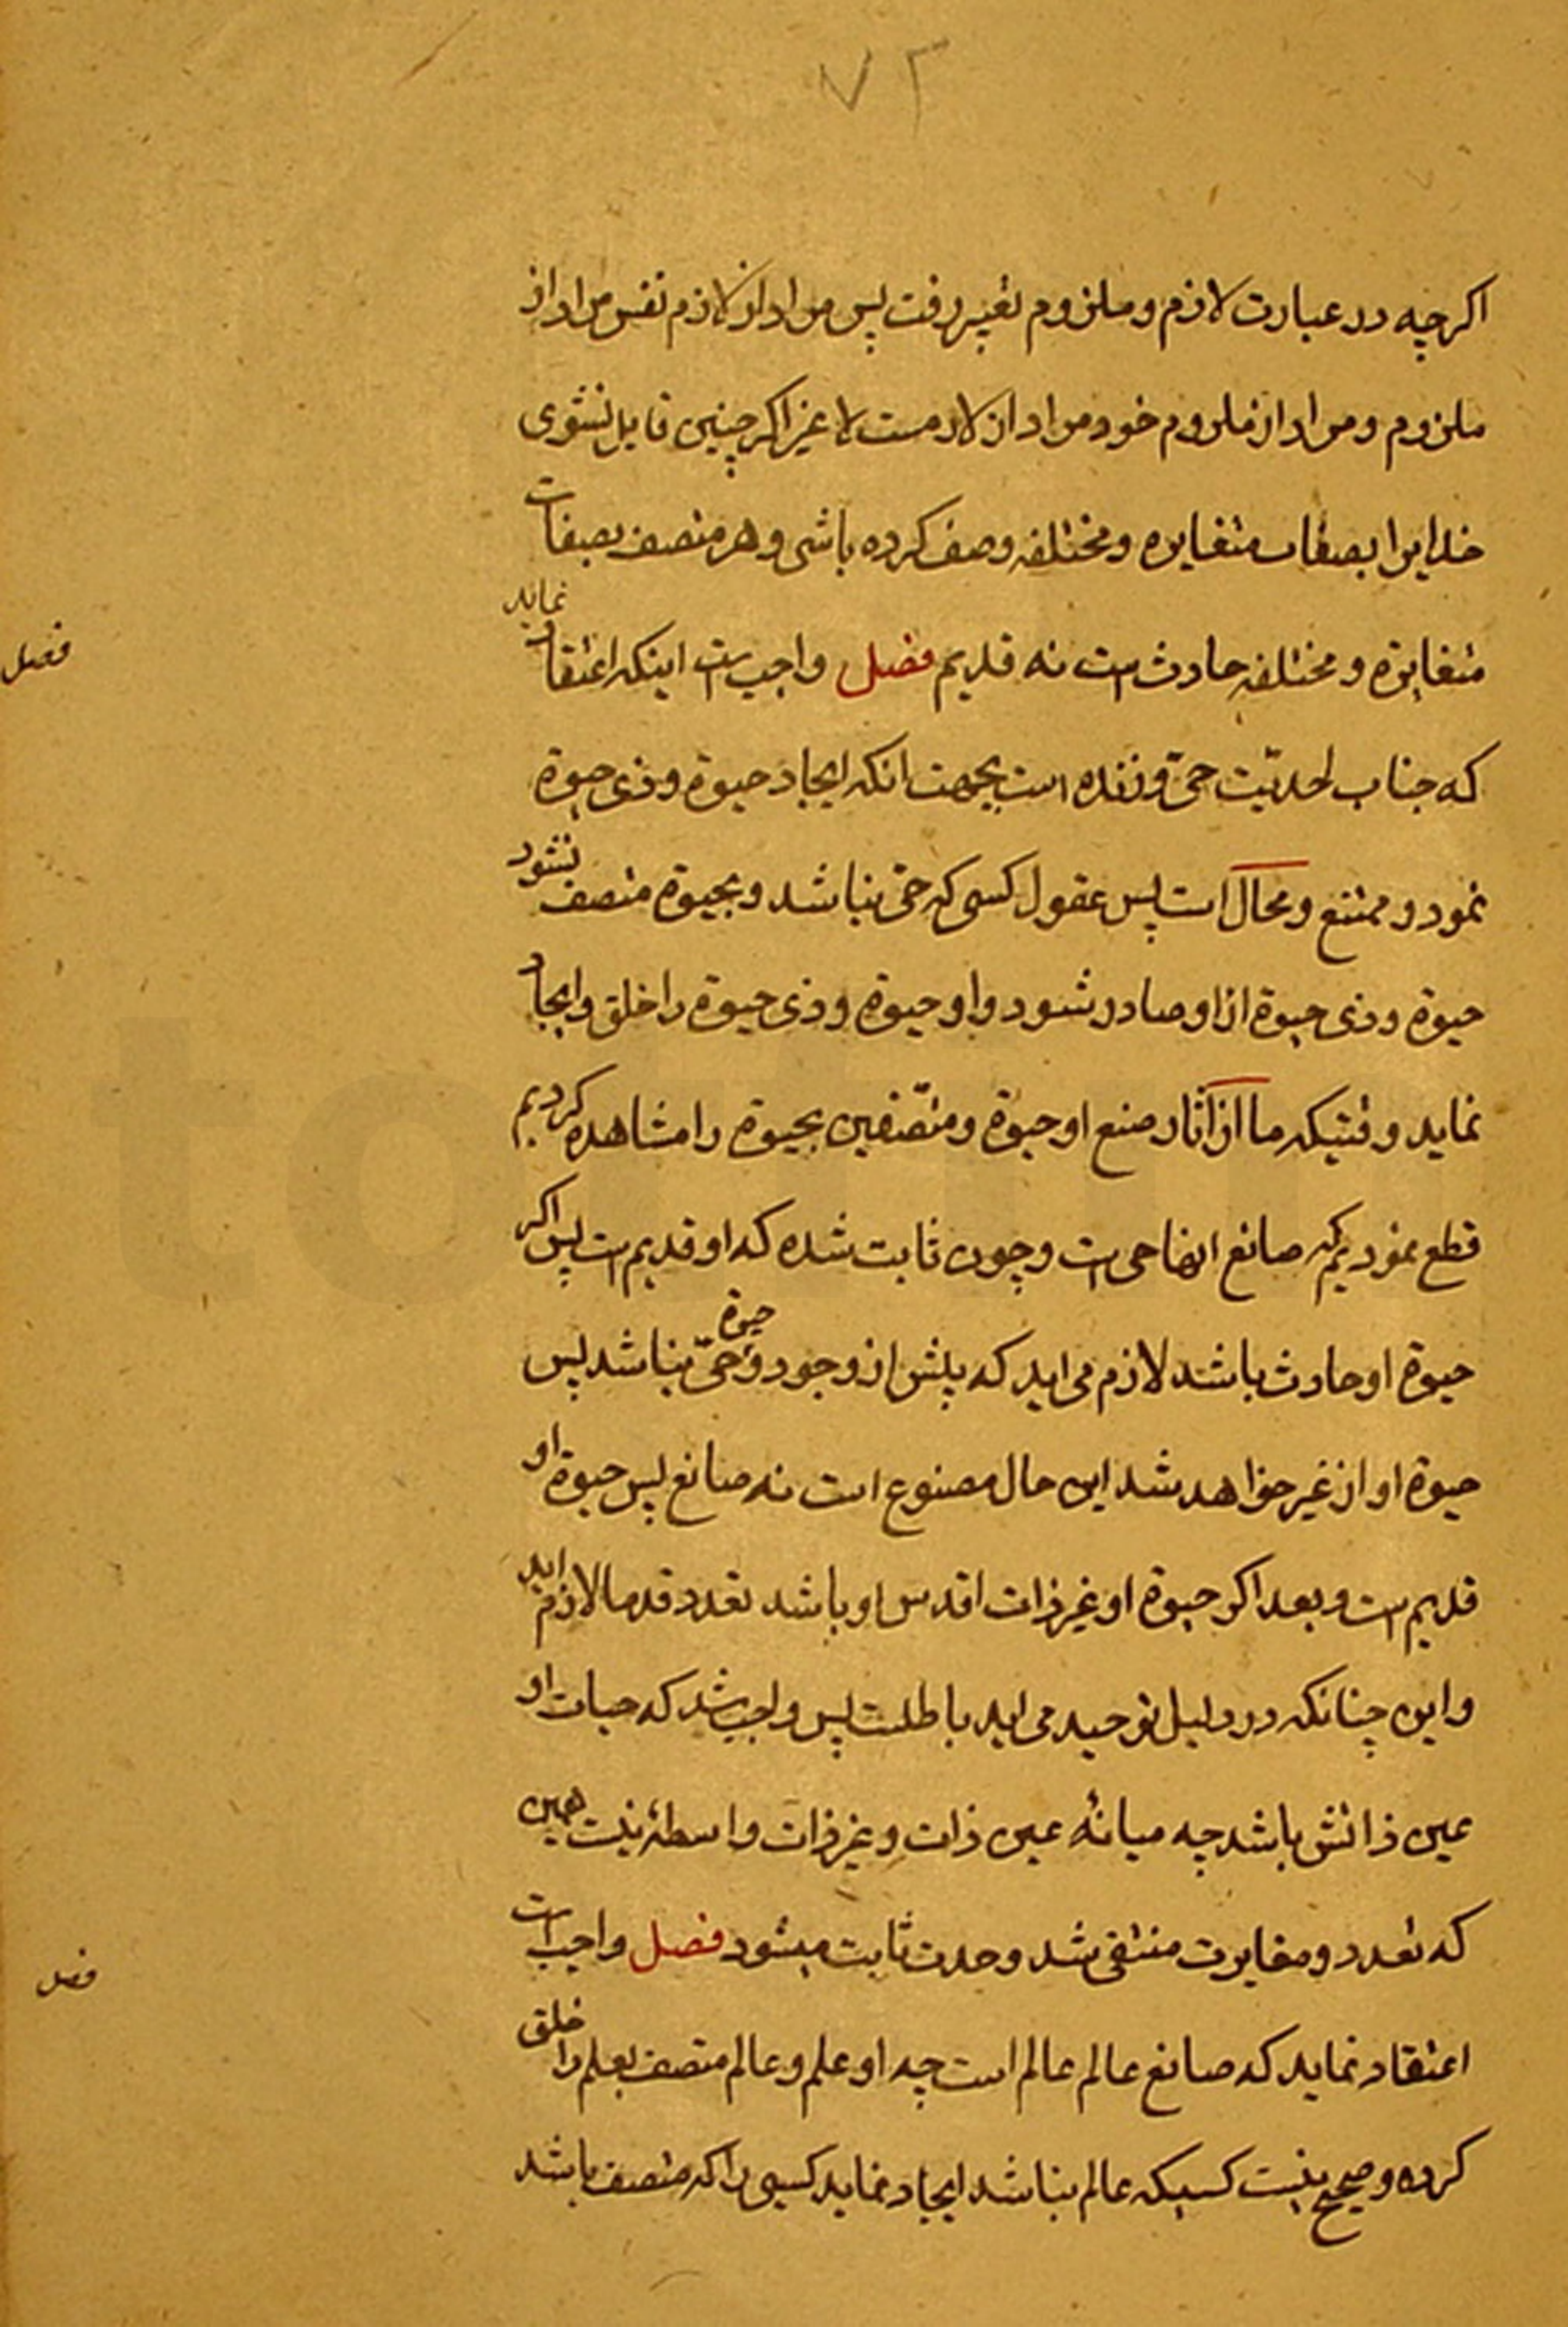 ۷۲
اکرچه در عبارت لازم و ملزوم تغییر رفت پس مراد از لازم نفس مراد از
ملزوم و مراد از ملزوم خود مراد از لازمست لا غیر اکر چنین قایل نشوی
خدایرا بصفات متغایره و مختلفه وصف کرده باشی و هر متصف بصفات
متغایره و مختلفه حادث است نه قدیم فصل واجب است اینکه اعتقاد نماید
فصل
که جناب احدیّت حیّ و زنده است بجهت انکه ایجاد حیوة و ذی حیوة
نمود و ممتنع و محال است پس عقول کسی که حیّ نباشد و بحیوة متصف نشود
حیوة و ذی حیوة از او صادر شود و او حیوة و ذی حیوة را خلق و ایجاد
نماید وقتیکه ما از آثار صنع او حیوة و متّصفین بحیوة را مشاهده کردیم
قطع نمودیم که صانع انها حی است و چون ثابت شده که او قدیم است پس اکر
حیوة او حادث باشد لازم می اید که پیش از وجود حیوة و حیّ نباشد پس
حیوة او از غیر خواهد شد این حال مصنوع است نه صانع پس حیوة او
قدیم است و بعد اکر حیوة او غیر ذات اقدس او باشد تعدد قدما لازم اید
و این چنانکه در دلیل توحید می اید باطلست پس واجب شد که حیات او
عین ذاتش باشد چه میانهٔ عین ذات و غیر ذات واسطهٔ نیست همین
که تعدد و مغایرت منتفی شد وحدت ثابت میشود فصل واجب است
فصل
اعتقاد نماید که صانع عالم عالم است چه او علم و عالم متصف بعلم را خلق
کرده و صحیح نیست کسیکه عالم نباشد ایجاد نماید کسی را که متصف باشد